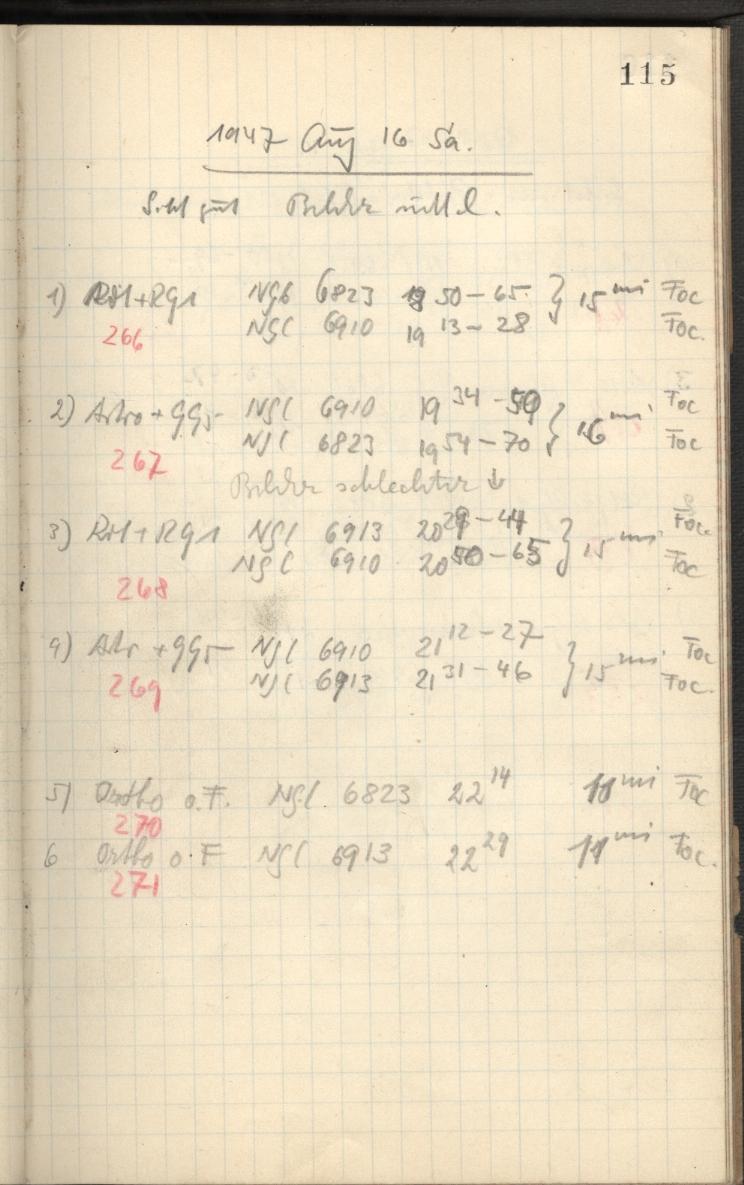 115
1947 Aug 16 Sa.
Bilder mittel.
1) Rot+RG1 NGC 6823 18 50 – 65 } 15 mi Foc
266 NGC 6910 19 13 – 28 Foc.
2) Astro + GG5 NGC 6910 19 34 – 50 } 16 mi Foc
267 NGC 6823 19 54 – 70 Foc
Bilder schlechter ↓
3) Rot+RG1 NGC 6913 20 29 – 44 } 15 mi Foc.
268 NGC 6910 20 50 – 65 Foc
4) Astr + GG5 NGC 6910 21 12 – 27 } 15 mi Foc
269 NGC 6913 21 31 – 46 Foc.
5) Ortho o.F. NGC 6823 22 14 mi Foc
270
6 Ortho o.F NGC 6913 22 29 mi Foc.
271